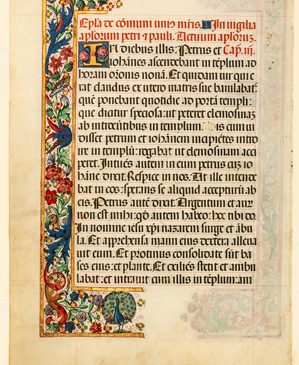 Ep̄la de cōmuni uniꝰ mr̄is. In uigilia
ap̄lorum petri ⁊ pauli. Actuum ap̄lorum.
In dicbus illis: Petrus et Cap. iij.
iohānes ascendebant in tēplum ad
horam orōnis nonā. Et quidam uir qui e
rat claudus ex utero matris sue baiulabat̄
quē ponebant quotidie ad portā templi:
que dicitur speciosa: ut peteret elemosinaꝫ
ab introeūtibus in templum. is cum ui
disset petrum et iohānem incipiētes intro
ire in templū: rogabat ut elemosinam acci
peret. Intuēs autem in eum petrus cū io
hāne dixit. Respice in nos. At ille intende
bat in eos: sperans se aliquid accepturū ab
eis. Petrus autē dixit. Argentum et aur
non est mihi: qō autem habeo: hec tibi do.
In nomine iesu xp̄i nazareni surge et abu
la. Et apprehensa manu eius dextera alleua
uit eum. Et protinus consolidate sūt ba
ses eius: et plante. Et exiliēs stetit et ambu
labat: et intrauit cum illis in tēplum: am